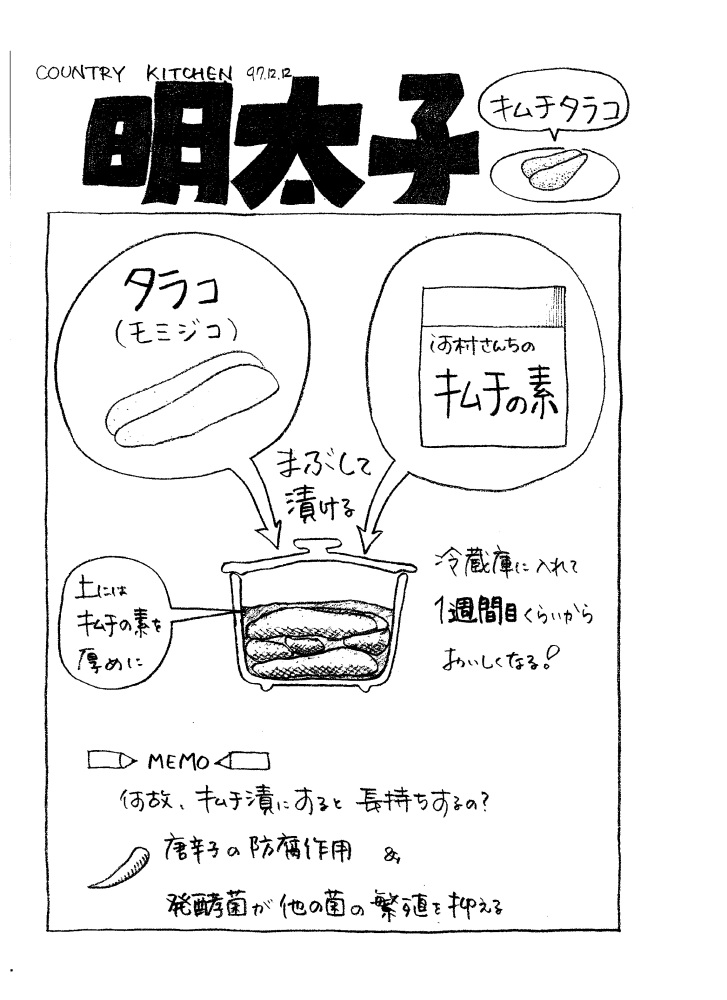 COUNTRY KITCHEN 97.12.12
明太子
キムチタラコ
タラコ
(モミジコ)
河村さんちの
キムチの素
まぶして
漬ける
上には
キムチの素を
厚めに
冷蔵庫に入れて
1週間目くらいから
おいしくなる!
MEMO
何故、キムチ漬にすると長持ちするの?
唐辛子の防腐作用 &
発酵菌が他の菌の繁殖を抑える